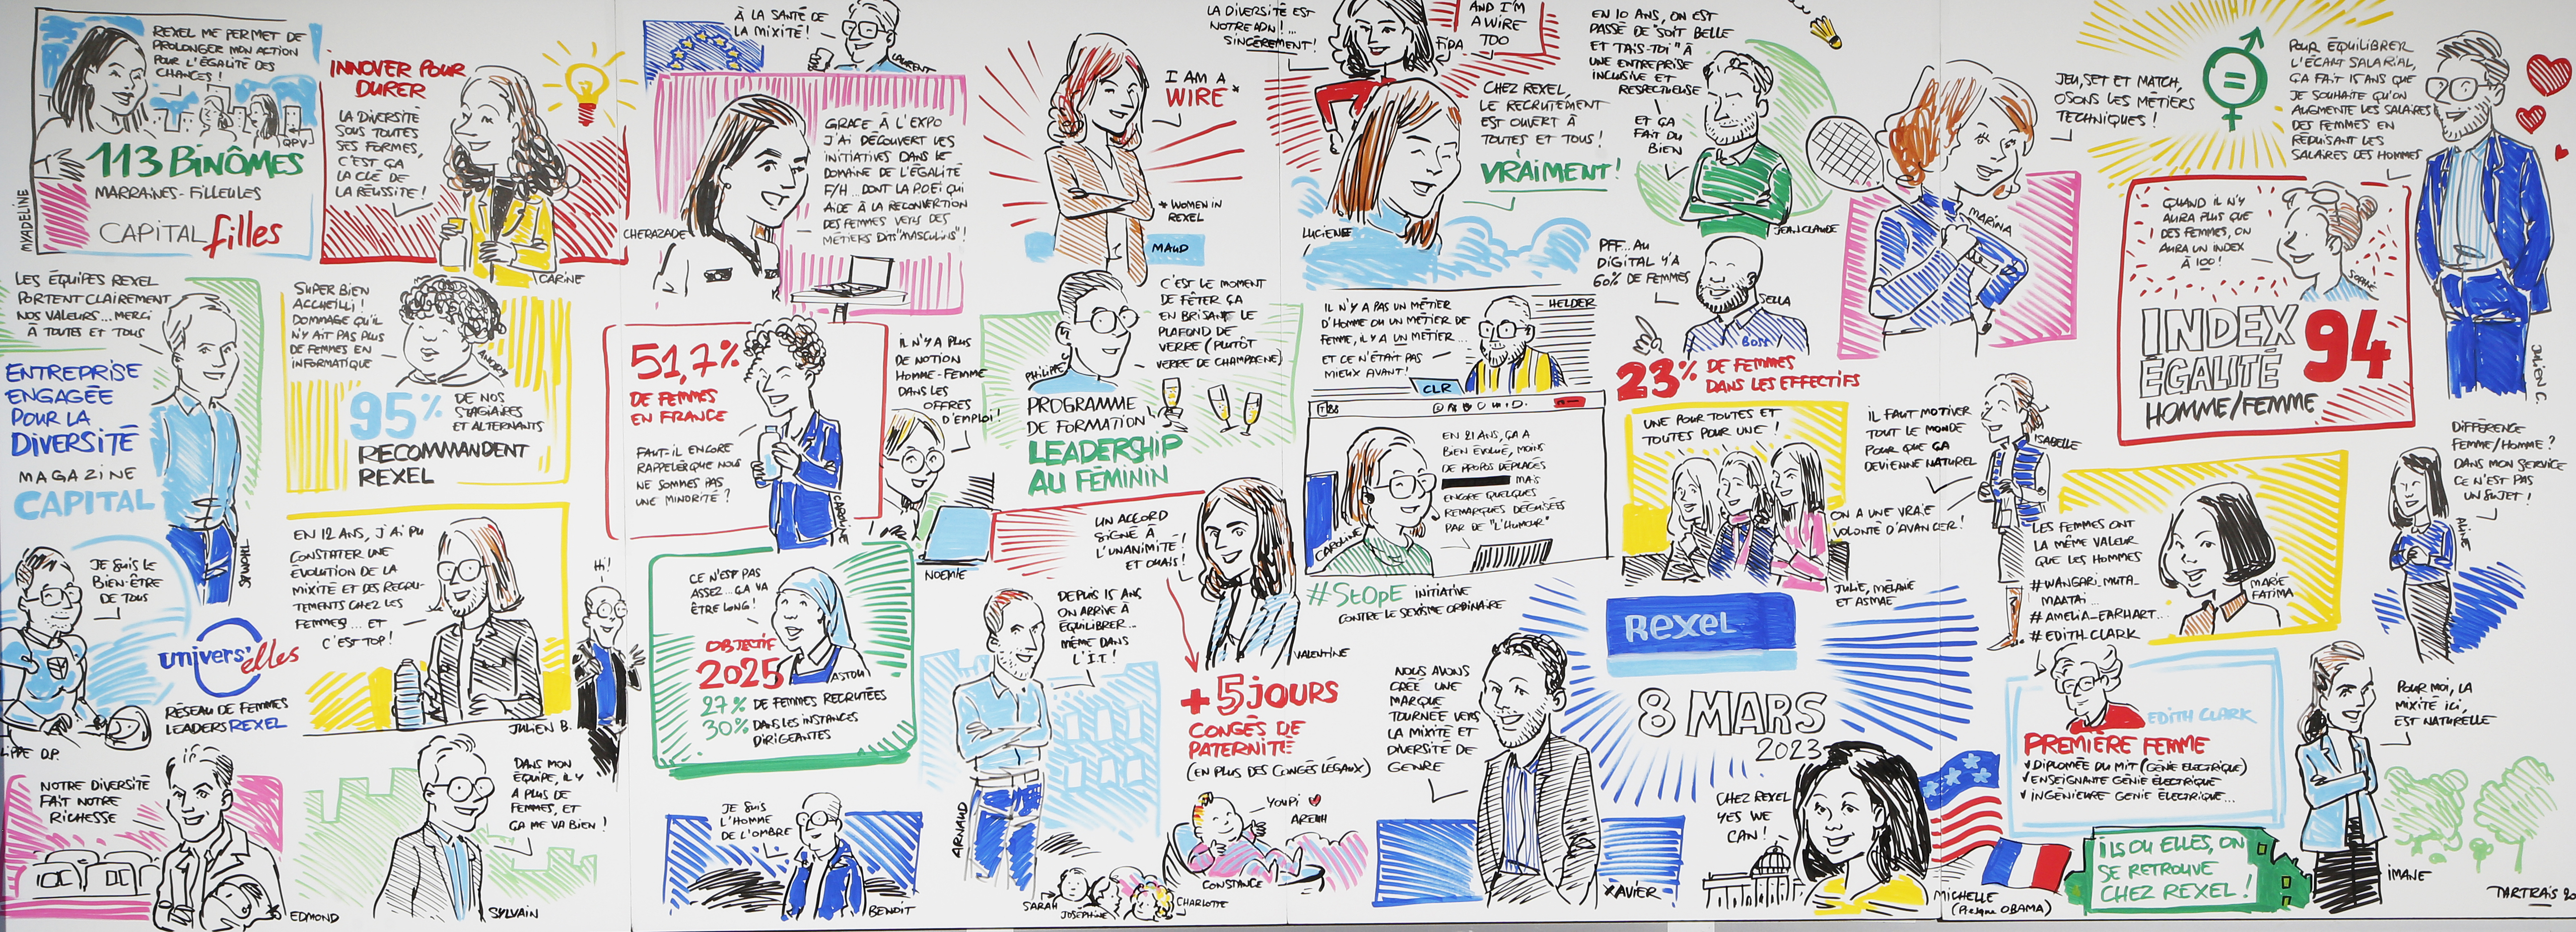 REXEL ME PERMET DE
PROLONGER MON ACTION
POUR L'ÉGALITÉ DES
CHANCES !
QPV
113 BINÔMES
MARRAINES-FILLEULES
CAPITAL filles
MYADELINE
INNOVER POUR
DURER
LA DIVERSITÉ
SOUS TOUTES
SES FORMES,
C'EST ÇA
LA CLÉ DE
LA RÉUSSITE !
CARINE
LES ÉQUIPES REXEL
PORTENT CLAIREMENT
NOS VALEURS... MERCI
À TOUTES ET TOUS
ENTREPRISE
ENGAGÉE
POUR LA
DIVERSITÉ
MAGAZINE
CAPITAL
THOMAS
SUPER BIEN
ACCUEILLI !
DOMMAGE QU'IL
N'Y AIT PAS PLUS
DE FEMMES EN
INFORMATIQUE
ANDDY
95%
DE NOS
STAGIAIRES
ET ALTERNANTS
RECOMMANDENT
REXEL
JE SUIS LE
BIEN-ÊTRE
DE TOUS
LIPPE D.P.
univers'elles
RÉSEAU DE FEMMES
LEADERS REXEL
EN 12 ANS, J'AI PU
CONSTATER UNE
ÉVOLUTION DE LA
MIXITÉ ET DES RECRU-
TEMENTS CHEZ LES
FEMMES... ET
C'EST TOP !
JULIEN B.
Hi !
NOTRE DIVERSITÉ
FAIT NOTRE
RICHESSE
EDMOND
DANS MON
ÉQUIPE, IL Y
A PLUS DE
FEMMES, ET
ÇA ME VA BIEN !
SYLVAIN
À LA SANTÉ DE
LA MIXITÉ !
LAURENT
GRACE À L'EXPO
J'AI DÉCOUVERT LES
INITIATIVES DANS LE
DOMAINE DE L'ÉGALITÉ
F/H... DONT LA POEI QUI
AIDE À LA RECONVERTION
DES FEMMES VERS DES
MÉTIERS DITS "MASCULINS" !
CHERAZADE
I AM A
WIRE *
* WOMEN IN
REXEL
MAUD
51,7%
DE FEMMES
EN FRANCE
FAUT-IL ENCORE
RAPPELER QUE NOUS
NE SOMMES PAS
UNE MINORITÉ ?
CAROLINE
IL N'Y A PLUS
DE NOTION
HOMME-FEMME
DANS LES
OFFRES
D'EMPLOI !
NOÉMIE
C'EST LE MOMENT
DE FÊTER ÇA
EN BRISANT LE
PLAFOND DE
VERRE (PLUTÔT
VERRE DE CHAMPAGNE)
PHILIPPE
PROGRAMME
DE FORMATION
LEADERSHIP
AU FÉMININ
CE N'EST PAS
ASSEZ... ÇA VA
ÊTRE LONG !
OBJECTIF
2025
ASTOU
27% DE FEMMES RECRUTÉES
30% DANS LES INSTANCES
DIRIGEANTES
UN ACCORD
SIGNÉ À
L'UNANIMITÉ !
ET OUAIS !
VALENTINE
+5 JOURS
CONGÉS DE
PATERNITÉ
(EN PLUS DES CONGÉS LÉGAUX)
DEPUIS 15 ANS
ON ARRIVE À
ÉQUILIBRER...
MÊME DANS
L'I.T !
ARNAUD
JE SUIS
L'HOMME
DE L'OMBRE
BENOIT
YOUPI
AREUH
CONSTANCE
SARAH
JOSÉPHINE
CHARLOTTE
LA DIVERSITÉ EST
NOTRE ADN !...
SINCÈREMENT !
FIDA
AND I'M
A WIRE
TOO
CHEZ REXEL,
LE RECRUTEMENT
EST OUVERT À
TOUTES ET TOUS !
VRAIMENT !
LUCIENNE
EN 10 ANS, ON EST
PASSÉ DE "SOIT BELLE
ET TAIS-TOI" À
UNE ENTREPRISE
INCLUSIVE ET
RESPECTUEUSE
ET ÇA
FAIT DU
BIEN
JEAN CLAUDE
IL N'Y A PAS UN MÉTIER
D'HOMME OU UN MÉTIER DE
FEMME, IL Y A UN MÉTIER...
ET CE N'ÉTAIT PAS
MIEUX AVANT !
HELDER
CLR
PFF... AU
DIGITAL Y'A
60% DE FEMMES
SELLA
BOSS
23% DE FEMMES
DANS LES EFFECTIFS
EN 21 ANS, ÇA A
BIEN ÉVOLUÉ, MOINS
DE PROPOS DÉPLACÉS
MAIS
ENCORE QUELQUES
REMARQUES DÉGUISÉES
PAR DE "L'HUMOUR"
CAROLINE
#StOpE INITIATIVE
CONTRE LE SEXISME ORDINAIRE
UNE POUR TOUTES ET
TOUTES POUR UNE !
JULIE, MÉLANIE
ET ASMAE
NOUS AVONS
CRÉÉ UNE
MARQUE
TOURNÉE VERS
LA MIXITÉ ET
DIVERSITÉ DE
GENRE
XAVIER
REXEL
8 MARS
2023
CHEZ REXEL
YES WE
CAN !
MICHELLE
(Presque OBAMA)
JEU, SET ET MATCH,
OSONS LES MÉTIERS
TECHNIQUES !
MARINA
POUR ÉQUILIBRER
L'ÉCART SALARIAL,
ÇA FAIT 15 ANS QUE
JE SOUHAITE QU'ON
AUGMENTE LES SALAIRES
DES FEMMES EN
RÉDUISANT LES
SALAIRES DES HOMMES
JULIEN C.
QUAND IL N'Y
AURA PLUS QUE
DES FEMMES, ON
AURA UN INDEX
À 100 !
SOPHIE
INDEX
ÉGALITÉ 94
HOMME/FEMME
IL FAUT MOTIVER
TOUT LE MONDE
POUR QUE ÇA
DEVIENNE NATUREL
ISABELLE
ON A UNE VRAIE
VOLONTÉ D'AVANCER !
LES FEMMES ONT
LA MÊME VALEUR
QUE LES HOMMES
#WANGARI_MUTA-
MAATAI...
#AMELIA_EARHART...
#EDITH CLARK
MARIE
FATIMA
DIFFÉRENCE
FEMME/HOMME ?
DANS MON SERVICE
CE N'EST PAS
UN SUJET !
ALINE
EDITH CLARK
PREMIÈRE FEMME
✓ DIPLOMÉE DU MIT (GÉNIE ELECTRIQUE)
✓ ENSEIGNANTE GÉNIE ÉLECTRIQUE
✓ INGÉNIEURE GÉNIE ÉLECTRIQUE...
POUR MOI, LA
MIXITÉ ICI,
EST NATURELLE
IMANE
ILS OU ELLES, ON
SE RETROUVE
CHEZ REXEL !
TARTRAIS